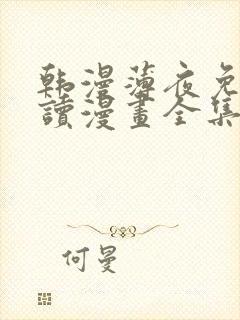 韩漫薄夜免
讀漫畫全集
何曼